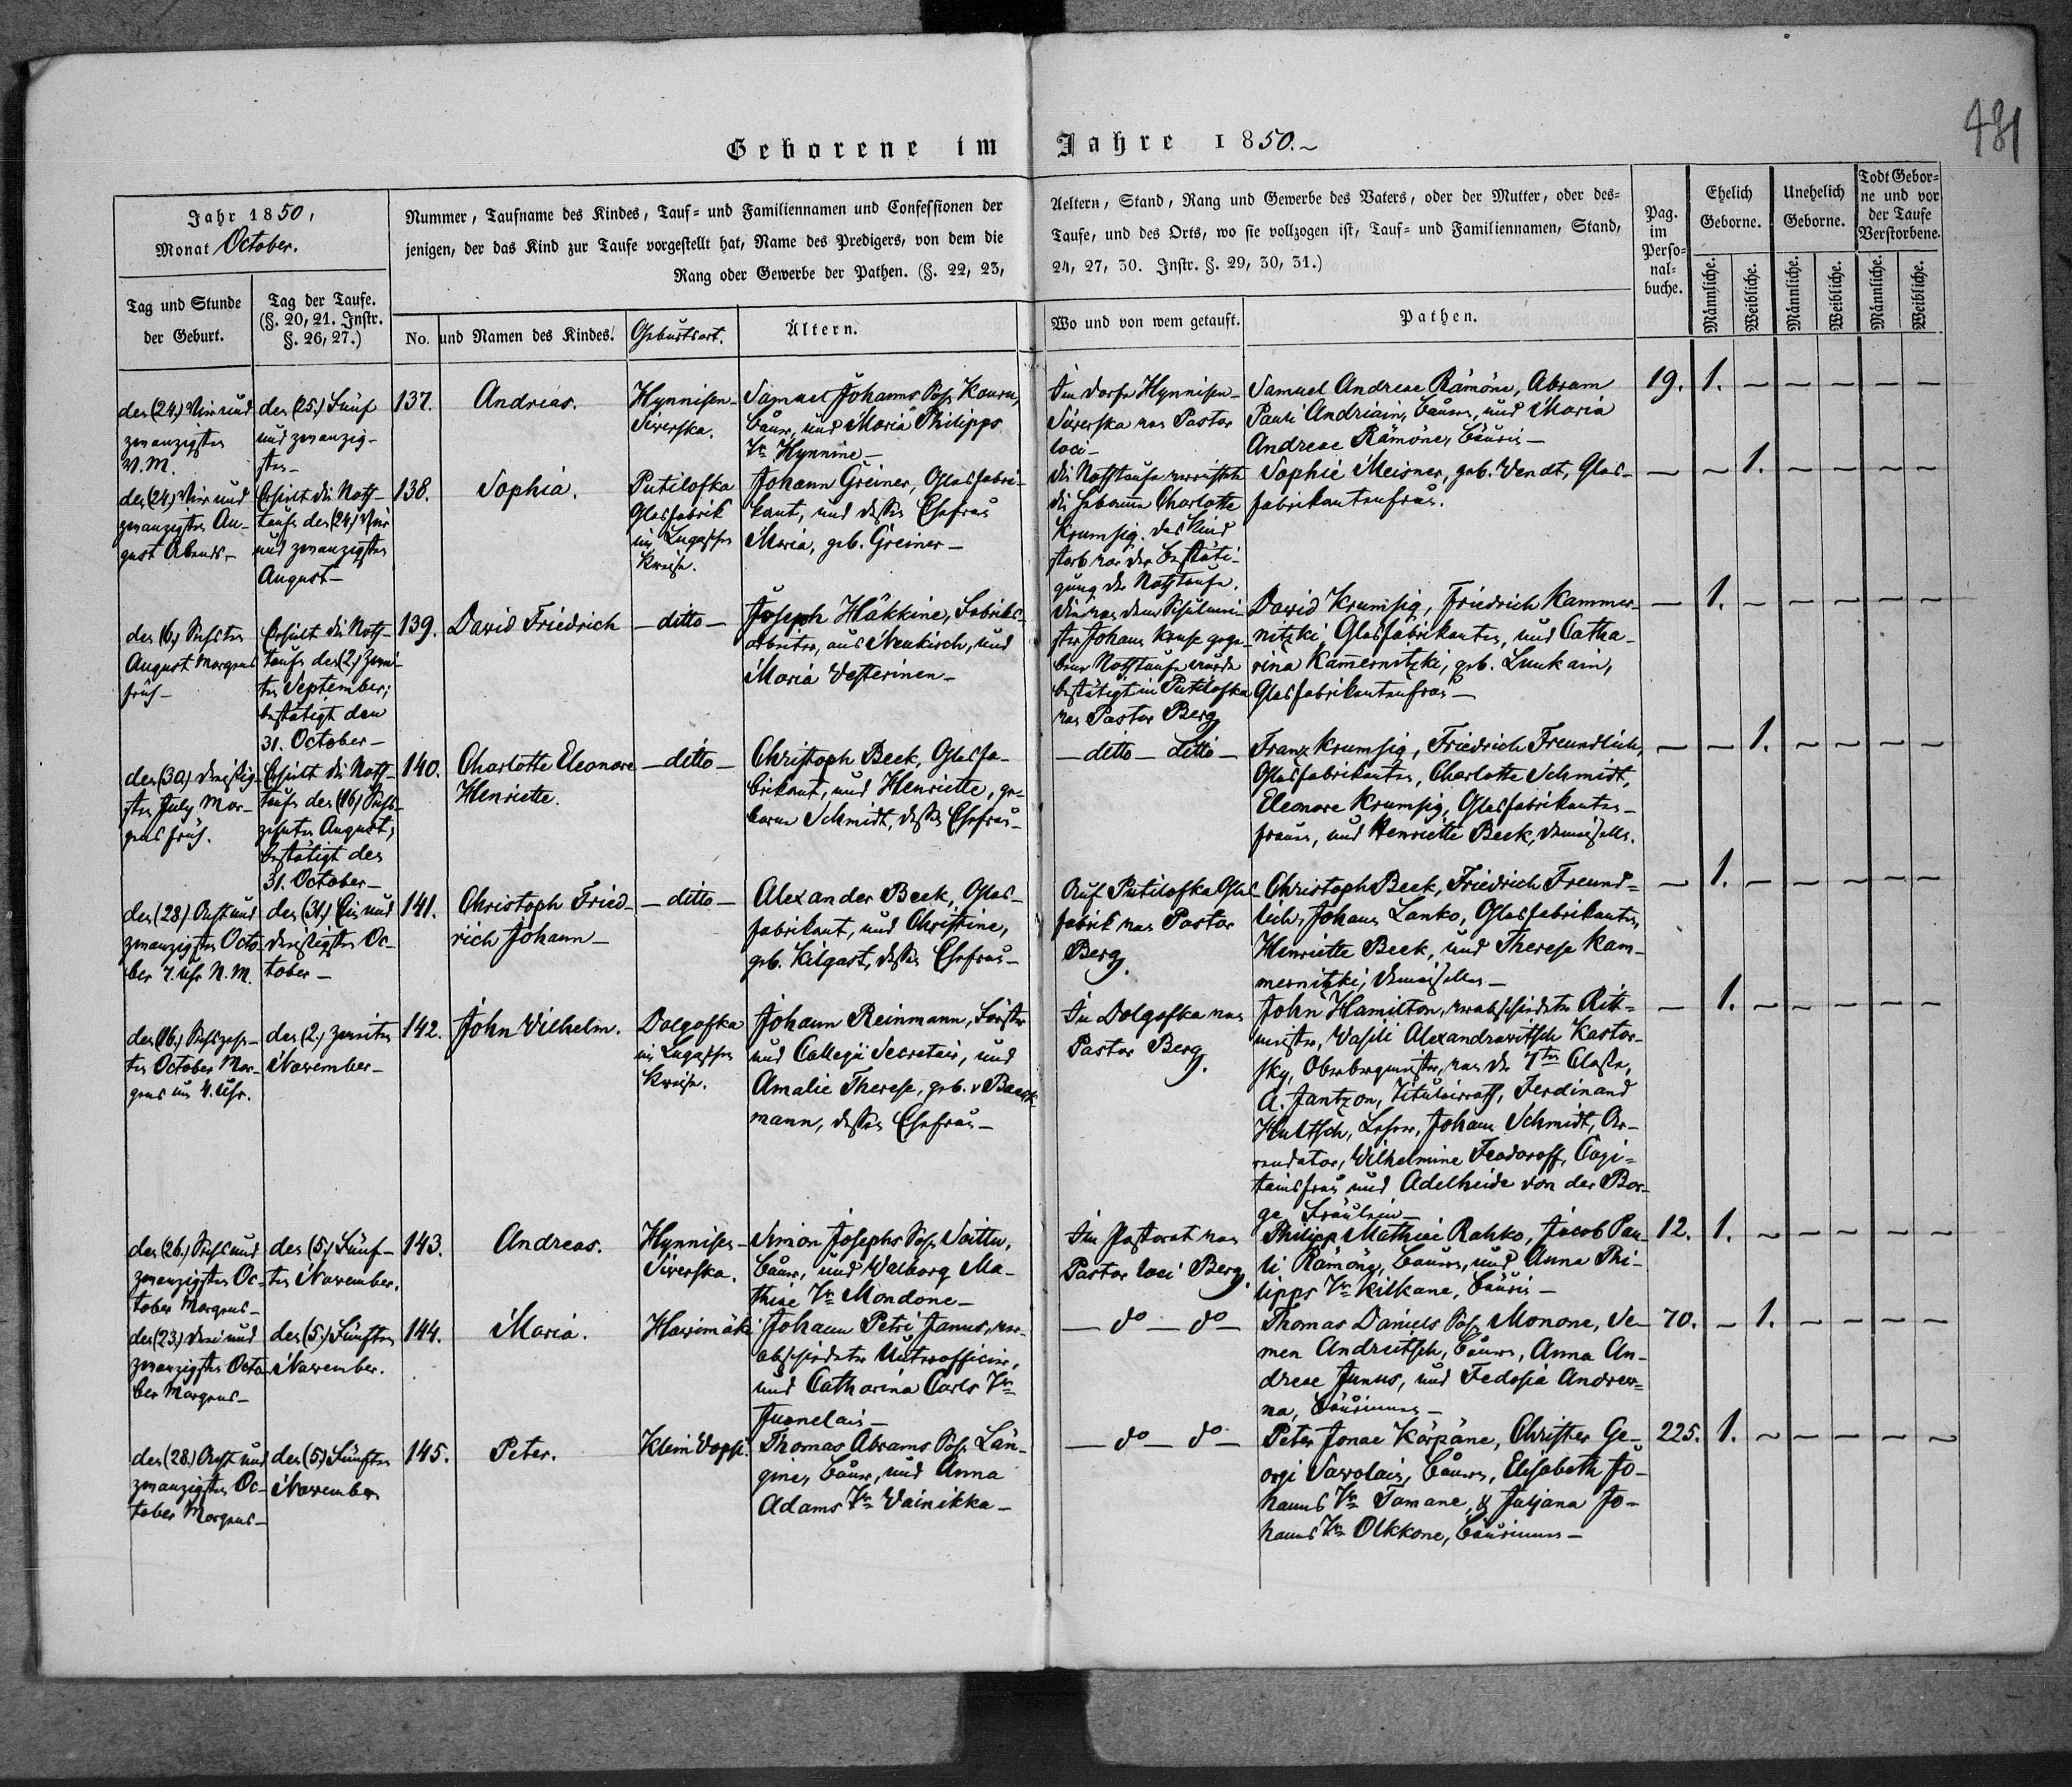 481
Geborene im Jahre 1850.
Jahr 1850,
Monat October.
Nummer, Taufname des Kindes, Tauf= und Familiennamen und Confessionen der
jenigen, der das Kind zur Taufe vorgestellt hat, Name des Predigers, von dem die
Rang oder Gewerbe der Pathen. (§. 22, 23,
Aeltern, Stand, Rang und Gewerbe des Vaters, oder der Mutter, oder des=
Taufe, und des Orts, wo sie vollzogen ist, Tauf= und Familiennamen, Stand,
24, 27, 30. Instr. §. 29, 30, 31.)
Pag.
im
Perso=
nal=
buche.
Ehelich
Geborne.
Unehelich
Geborne.
Todt Gebor=
ne und vor
der Taufe
Verstorbene.
Männliche.
Weibliche.
Männliche.
Weibliche.
Männliche.
Weibliche.
Tag und Stunde
der Geburt.
Tag der Taufe.
(§. 20, 21. Instr.
§. 26, 27.)
No. und Namen des Kindes.
Geburtsort.
Ältern.
Wo und von wem getauft.
Pathen.
den (24.) Vier und
zwanzigsten
V. M.
den (25.) Fünf
und zwanzig-
sten-
137.
Andreas.
Hynnisen-
Siwerska.
Samuel Johanns Sohn Kauru,
Bauer, und Maria Philipps
Tr. Hynnine-
Im Dorfe Hynnisen-
Siwerska von Pastor
loci-
Samuel Andreae Rämöne, Abram
Pauli Andriain, Bauern, und Maria
Andreae Rämöne, Bäurin-
19. 1. - - - - -
den (24) Vier und
zwanzigsten Au-
gust Abends-
Erhielt die Noth-
taufe den (24) Vier
und zwanzigsten
August-
138.
Sophia.
Putilofka
Glasfabrik
im Lugaschen
Kreise.
Johann Greiner, Glasfabri-
kant, und dessen Ehefrau
Maria, geb. Greiner-
Die Nothtaufe verrichtete
die Hebamme Charlotte
Krumsig. Das Kind
starb vor der Bestäti-
gung der Nothtaufe.
Sophie Meisner, geb. Wendt, Glas-
fabrikantenfrau.
- - 1. - - - -
den (6) Sechsten
August Morgens
früh-
Erhielt die Noth-
taufe den (2) Zwei-
ten September;
bestätigt den
31. October-
139.
David Friedrich
-ditto-
Joseph Häkkine, Fabriks-
arbeiter, aus Neukirch, und
Maria Westerinen-
Die von dem Schulmei-
ster Johann Kruse gege-
bene Nothtaufe wurde
bestätigt in Putilofka
von Pastor Berg
David Krumsig, Friedrich Kammer-
nitzki, Glasfabrikanten, und Catha-
rina Kamernitzki, geb. Luukain,
Glasfabrikantenfrau-
- 1. - - - - -
den (30) dreißig-
sten July Mor-
gens früh.
Erhielt die Noth-
taufe den (16) Sech-
zehnten August;
bestätigt den
31. October-
140.
Charlotte Eleonore
Henriette.
-ditto-
Christoph Beck, Glasfa-
brikant, und Henriette, ge-
borne Schmidt, dessen Ehefrau-
-ditto-ditto-
Franz Krumsig, Friedrich Freundlich,
Glasfabrikanten, Charlotte Schmidt,
Eleonore Krumsig, Glasfabrikanten-
frauen, und Henriette Beck, Demoiselle.
- - 1. - - - -
den (28) Acht und
zwanzigsten Octo-
ber 7. Uhr N. M.
den (31) Ein und
dreißigsten Oc-
tober-
141.
Christoph Fried-
rich Johann-
-ditto-
Alexander Beck, Glas-
fabrikant, und Christine,
geb. Kilgast, dessen Ehefrau-
Auf Putilofka Glas-
fabrik von Pastor
Berg.
Christoph Beck, Friedrich Freund=
lich, Johann Lanko, Glasfabrikanten,
Henriette Beck, und Therese Kam-
mernitzki, Demoisellen-
- 1. - - - - -
den (16.) Sechszehn-
ten October Mor-
gens um 4. Uhr.
den (2.) zweiten
November-
142.
John Wilhelm.
Dolgofka
im Lugaschen
Kreise.
Johann Reinmann, Förster
und Collegii Secretair, und
Amalie Therese, geb. v Baeck-
mann, dessen Ehefrau-
In Dolgofka von
Pastor Berg.
John Hamilton, verabschiedeter Ritt=
meister, Wasili Alexandrowitsch Kastor-
sky, Oberbergmeister, von der 7ten Classe,
A. Jantzon, Titulairrath, Ferdinand
Hultsch, Lehrer, Johann Schmidt, Ar-
rendator, Wilhelmine Feodoroff, Capi-
tainsfrau und Adelheide von der Bor-
ge Fräulein-
- 1. - - - - -
den (26.) Sechs und
zwanzigsten Oc-
tober Morgens-
den (5.) Fünf-
ten November.
143.
Andreas.
Hynnisen-
Siwerska.
Simon Josephs Sohn Soittu,
Bauer, und Walborg Ma-
thiae Tr. Mondone-
Im Pastorat von
Pastor loci Berg.
Philipp Mathiae Rahko, Jacob Pau-
li Rämöne, Bauern, und Anna Phi-
lipps Tr. Kilkane, Bäurin-
12. 1. - - - - -
den (23.) Drei und
zwanzigsten Octo-
ber Morgens-
den (5.) Fünften
November.
144.
Maria.
Hawimäki
Johann Petri Junus, ver-
abschiedeter Unterofficier,
und Catharina Carls Tr.
Juonelain-
- do - do -
Thomas Daniels Sohn Monone, Se-
men Andreitsch, Bauern, Anna An-
dreae Junus, und Fedosia Andrew-
na, Bäurinnen-
70. - 1. - - - -
den (28.) Acht und
zwanzigsten Oc-
tober Morgens-
den (5) Fünften
November
145.
Peter.
Klein Wopsi.
Thomas Abrams Sohn Län-
gine, Bauer, und Anna
Adams Tr. Wainikka-
- do - do -
Peter Jonae Kärpäne, Christer Ge-
orgi Sawolain, Bauern, Elisabeth Jo-
hanns Tr. Tamane, & Juljana Jo-
hanns Tr. Olkkone, Bäurinnen-
225. 1. - - - - -